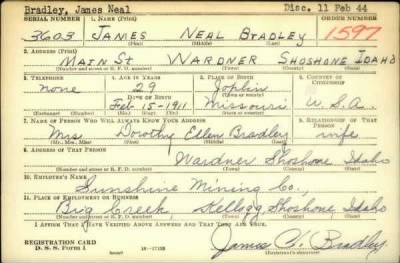 Bradley, James Neal Disc. 11 Feb 44
SERIAL NUMBER 1. NAME (Print) ORDER NUMBER
3603 JAMES NEAL BRADLEY 1597
(First) (Middle) (Last)
2. ADDRESS (Print)
MAIN ST. WARDNER SHOSHONE IDAHO
(Number and street or R. F. D. number) (Town) (County) (State)
3. TELEPHONE 4. AGE IN YEARS 5. PLACE OF BIRTH 6. COUNTRY OF CITIZENSHIP
none 29 Joplin
DATE OF BIRTH (Town or county)
Feb 15-1911 Missouri U.S.A.
(Exchange) (Number) (Mo.) (Day) (Yr.) (State or country)
7. NAME OF PERSON WHO WILL ALWAYS KNOW YOUR ADDRESS 8. RELATIONSHIP OF THAT PERSON
Mrs Dorothy Ellen Bradley wife
(Mr., Mrs., Miss) (First) (Middle) (Last)
9. ADDRESS OF THAT PERSON
Wardner Shoshone Idaho
(Number and street or R. F. D. number) (Town) (County) (State)
10. EMPLOYER'S NAME
Sunshine Mining Co.,
11. PLACE OF EMPLOYMENT OR BUSINESS
Big Creek, Kellogg Shoshone, Idaho
(Number and street or R. F. D. number) (Town) (County) (State)
I AFFIRM THAT I HAVE VERIFIED ABOVE ANSWERS AND THAT THEY ARE TRUE.
REGISTRATION CARD
D. S. S. Form 1 16-17105 James N. Bradley
(Registrant's signature)